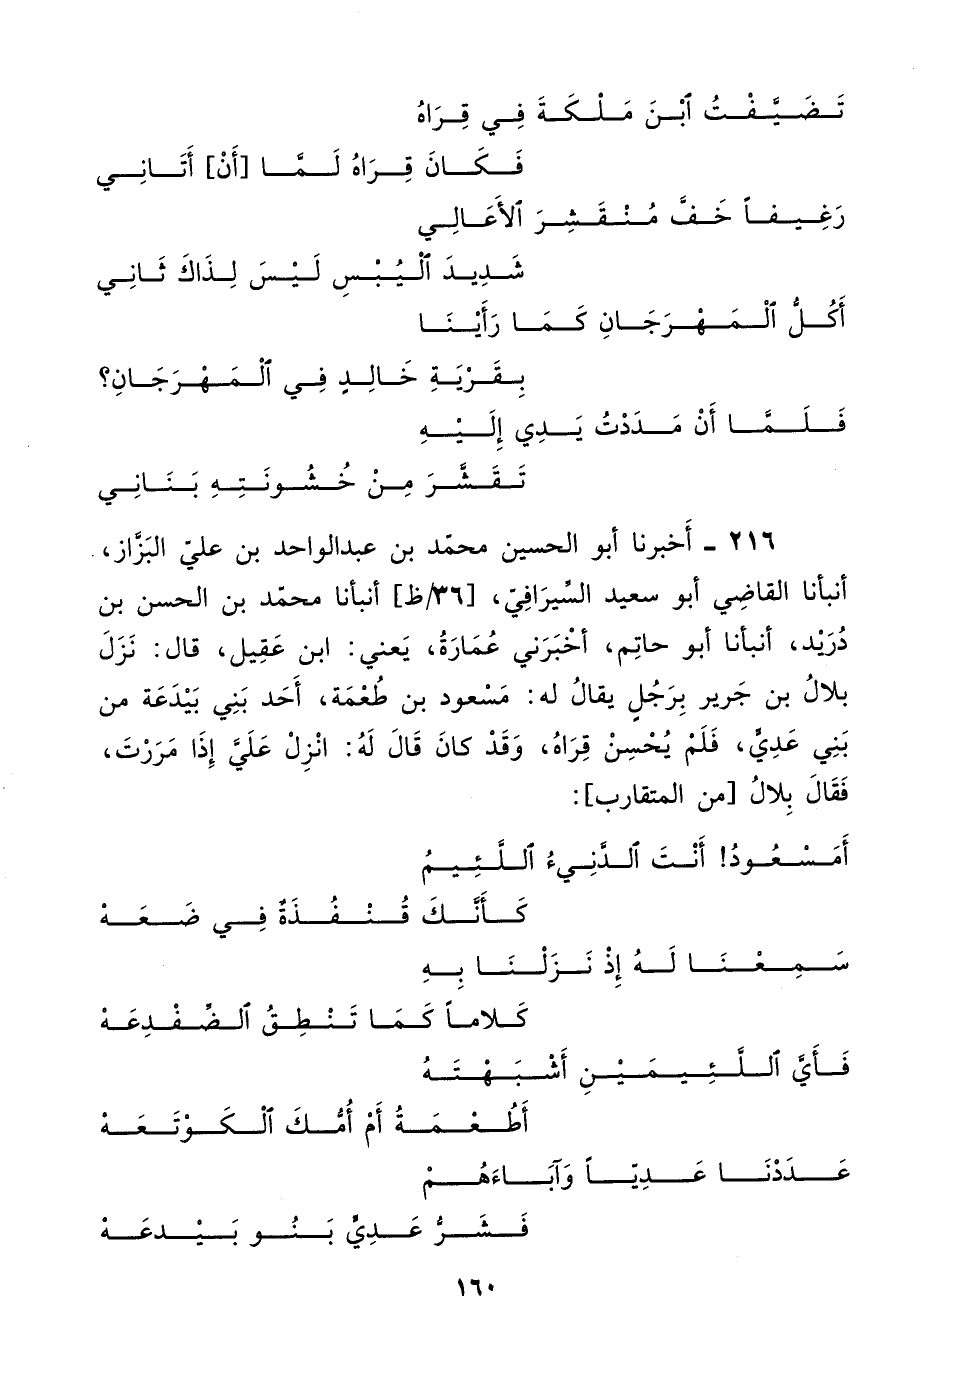 تَضَيَّفْتُ ٱبْنَ مَلْكَةَ فِي قِرَاهُ
فَكَانَ قِرَاهُ لَمَّا [أَنْ] أَتَانِي
رَغِيفاً خَفَّ مُنْقَشِرَ ٱلأَعَالِي
شَدِيدَ ٱلْيُبْسِ لَيْسَ لِذَاكَ ثَانِي
أَكُلُّ ٱلْمَهْرَجَانِ كَمَا رَأَيْنَا
بِقَرْيَةِ خَالِدٍ فِي ٱلْمَهْرَجَانِ؟
فَلَمَّا أَنْ مَدَدْتُ يَدِي إِلَيْهِ
تَقَشَّرَ مِنْ خُشُونَتِهِ بَنَانِي
٢١٦ ـ أَخبرنا أبو الحسين محمّد بن عبدالواحد بن عليّ البَزَّاز،
أنبأنا القاضِي أبو سعيد السِّيرَافِيّ، [٣٦/ظ] أنبأنا محمّد بن الحسن بن
دُرَيْد، أنبأنا أبو حاتِم، أخْبَرَني عُمَارَةُ، يَعني: ابن عَقِيل، قال: نَزَلَ
بلالُ بن جَرير بِرَجُلٍ يقالُ له: مَسْعود بن طُعْمَة، أَحَد بَنِي بَيْدَعَة من
بَنِي عَدِيٍّ، فَلَمْ يُحْسِنْ قِرَاهُ، وَقَدْ كانَ قَالَ لَهُ: انْزِلْ عَلَيَّ إِذَا مَرَرْتَ،
فَقَالَ بِلالُ [من المتقارب]:
أَمَسْعُودُ! أَنْتَ ٱلدَّنِيءُ ٱللَّئِيمُ
كَأَنَّكَ قُنْفُذَةٌ فِي ضَعَهْ
سَمِعْنَا لَهُ إِذْ نَزَلْنَا بِهِ
كَلاماً كَمَا تَنْطِقُ ٱلضِّفْدِعَهْ
فَأَيَّ ٱللَّئِيمَيْنِ أَشْبَهْتَهُ
أَطُعْمَةُ أَمْ أُمُّكَ ٱلْكَوْتَعَهْ
عَدَدْنَا عَدِيّاً وَآبَاءَهُمْ
فَشَرُّ عَدِيٍّ بَنُو بَيْدعَهْ
١٦٠